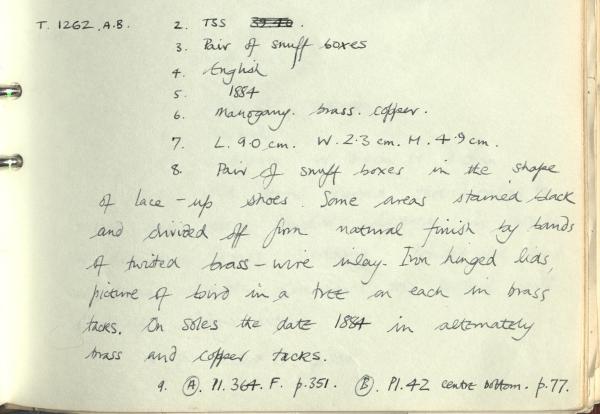 T. 1262. A.B. 2. TSS
3. Pair of snuff boxes
4. English
5. 1884
6. Mahogany. brass. copper.
7. L. 9.0 cm. W. 2.3 cm. H. 4.9 cm.
8. Pair of snuff boxes in the shape
of lace-up shoes. Some areas stained black
and divided off from natural finish by bands
of twisted brass-wire inlay. Iron hinged lids,
picture of bird in a tree on each in brass
tacks. On soles the date 1884 in alternately
brass and copper tacks.
9. (A). Pl. 364. F. p.351. (B). Pl. 42 centre bottom. p.77.